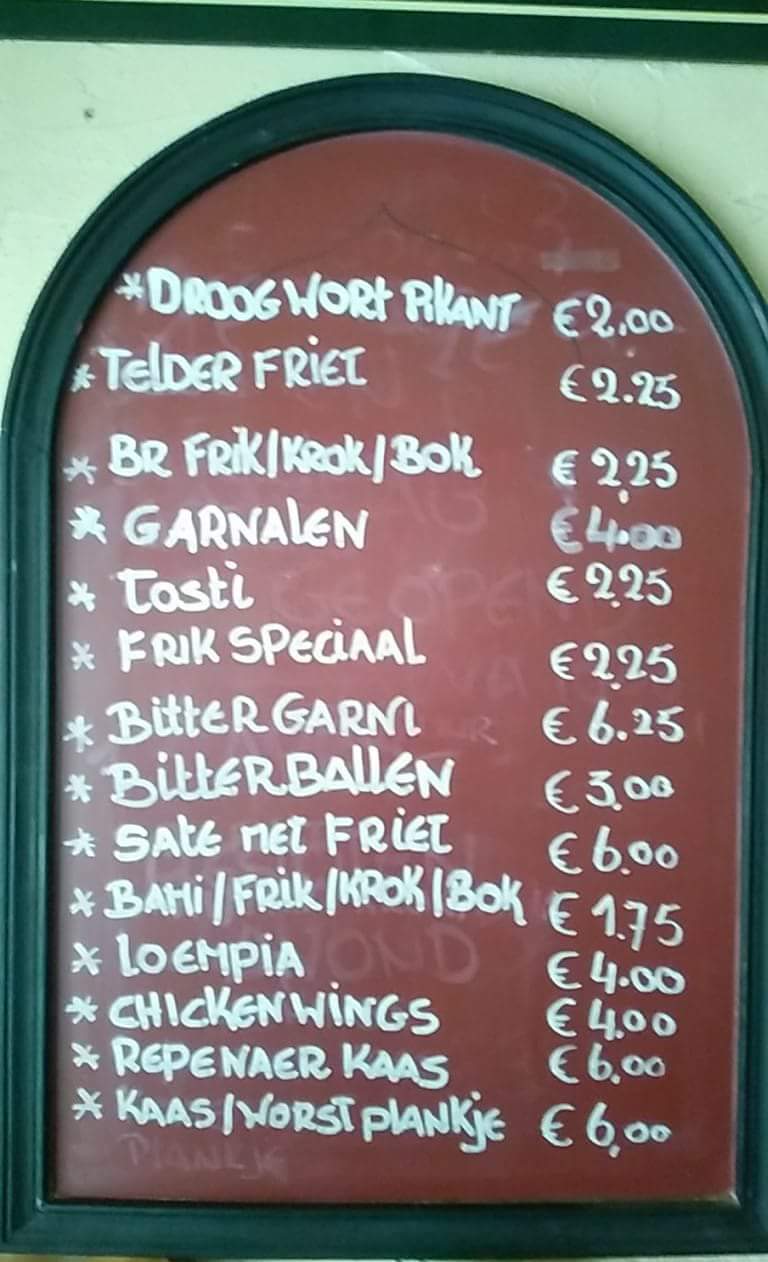 * DROOG WORT PIKANT € 2.00
* TELDER FRIET € 2.25
* BR FRIK/KROK/BOK € 2,25
* GARNALEN € 4.00
* TOSTI € 2.25
* FRIK SPECIAAL € 2.25
* BITTER GARNI € 6.25
* BITTERBALLEN € 3,00
* SATE MET FRIET € 6.00
* BAMI/FRIK/KROK/BOK € 1.75
* LOEMPIA € 4.00
* CHICKENWINGS € 4,00
* REPENAER KAAS € 6.00
* KAAS/WORST PLANKJE € 6,00
PLANKJE